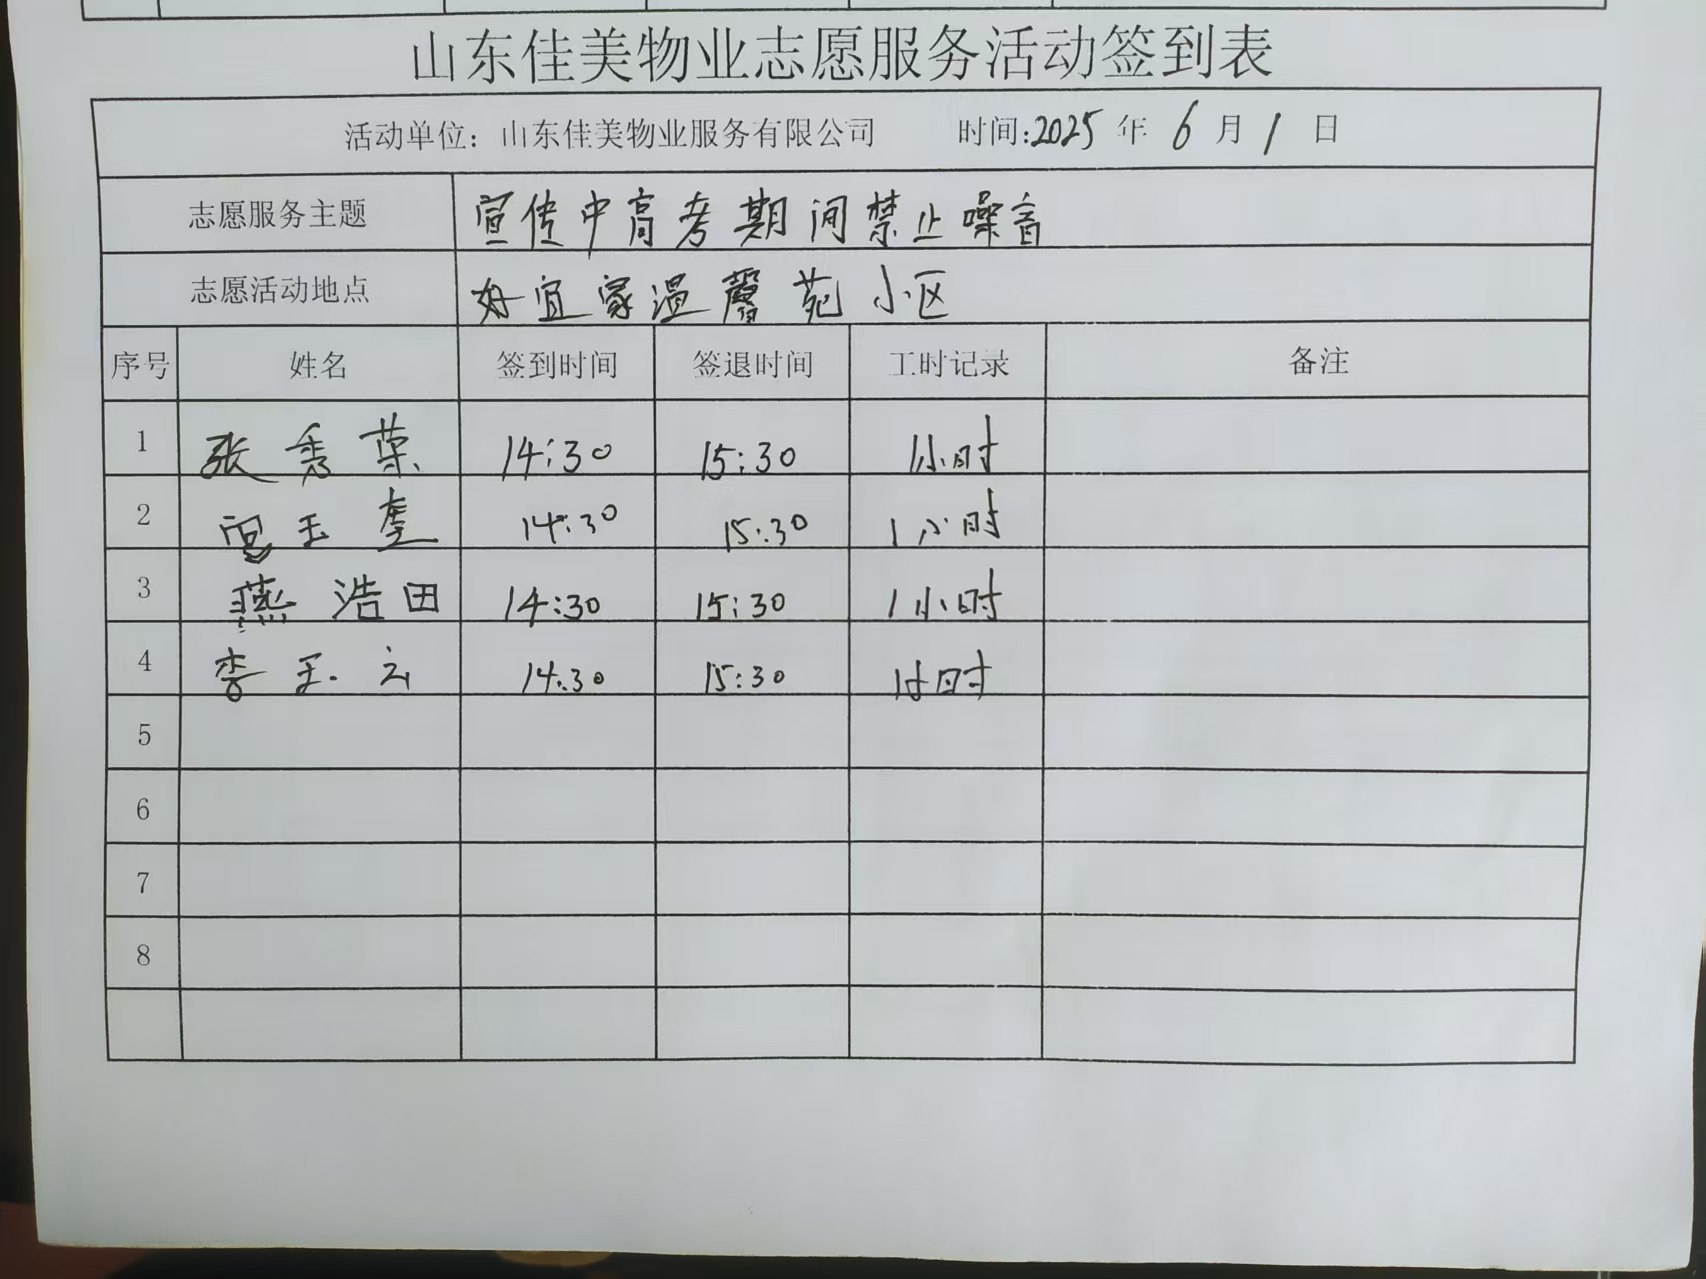 山东佳美物业志愿服务活动签到表
活动单位：山东佳美物业服务有限公司 时间:2025 年 6 月 1 日
志愿服务主题 宣传中高考期间禁止噪音
志愿活动地点 好宜家温馨苑小区
序号 姓名 签到时间 签退时间 工时记录 备注
1 张秀荣 14:30 15:30 1小时
2 玉奎 14:30 15:30 1小时
3 燕浩田 14:30 15:30 1小时
4 李玉云 14:30 15:30 1小时
5
6
7
8